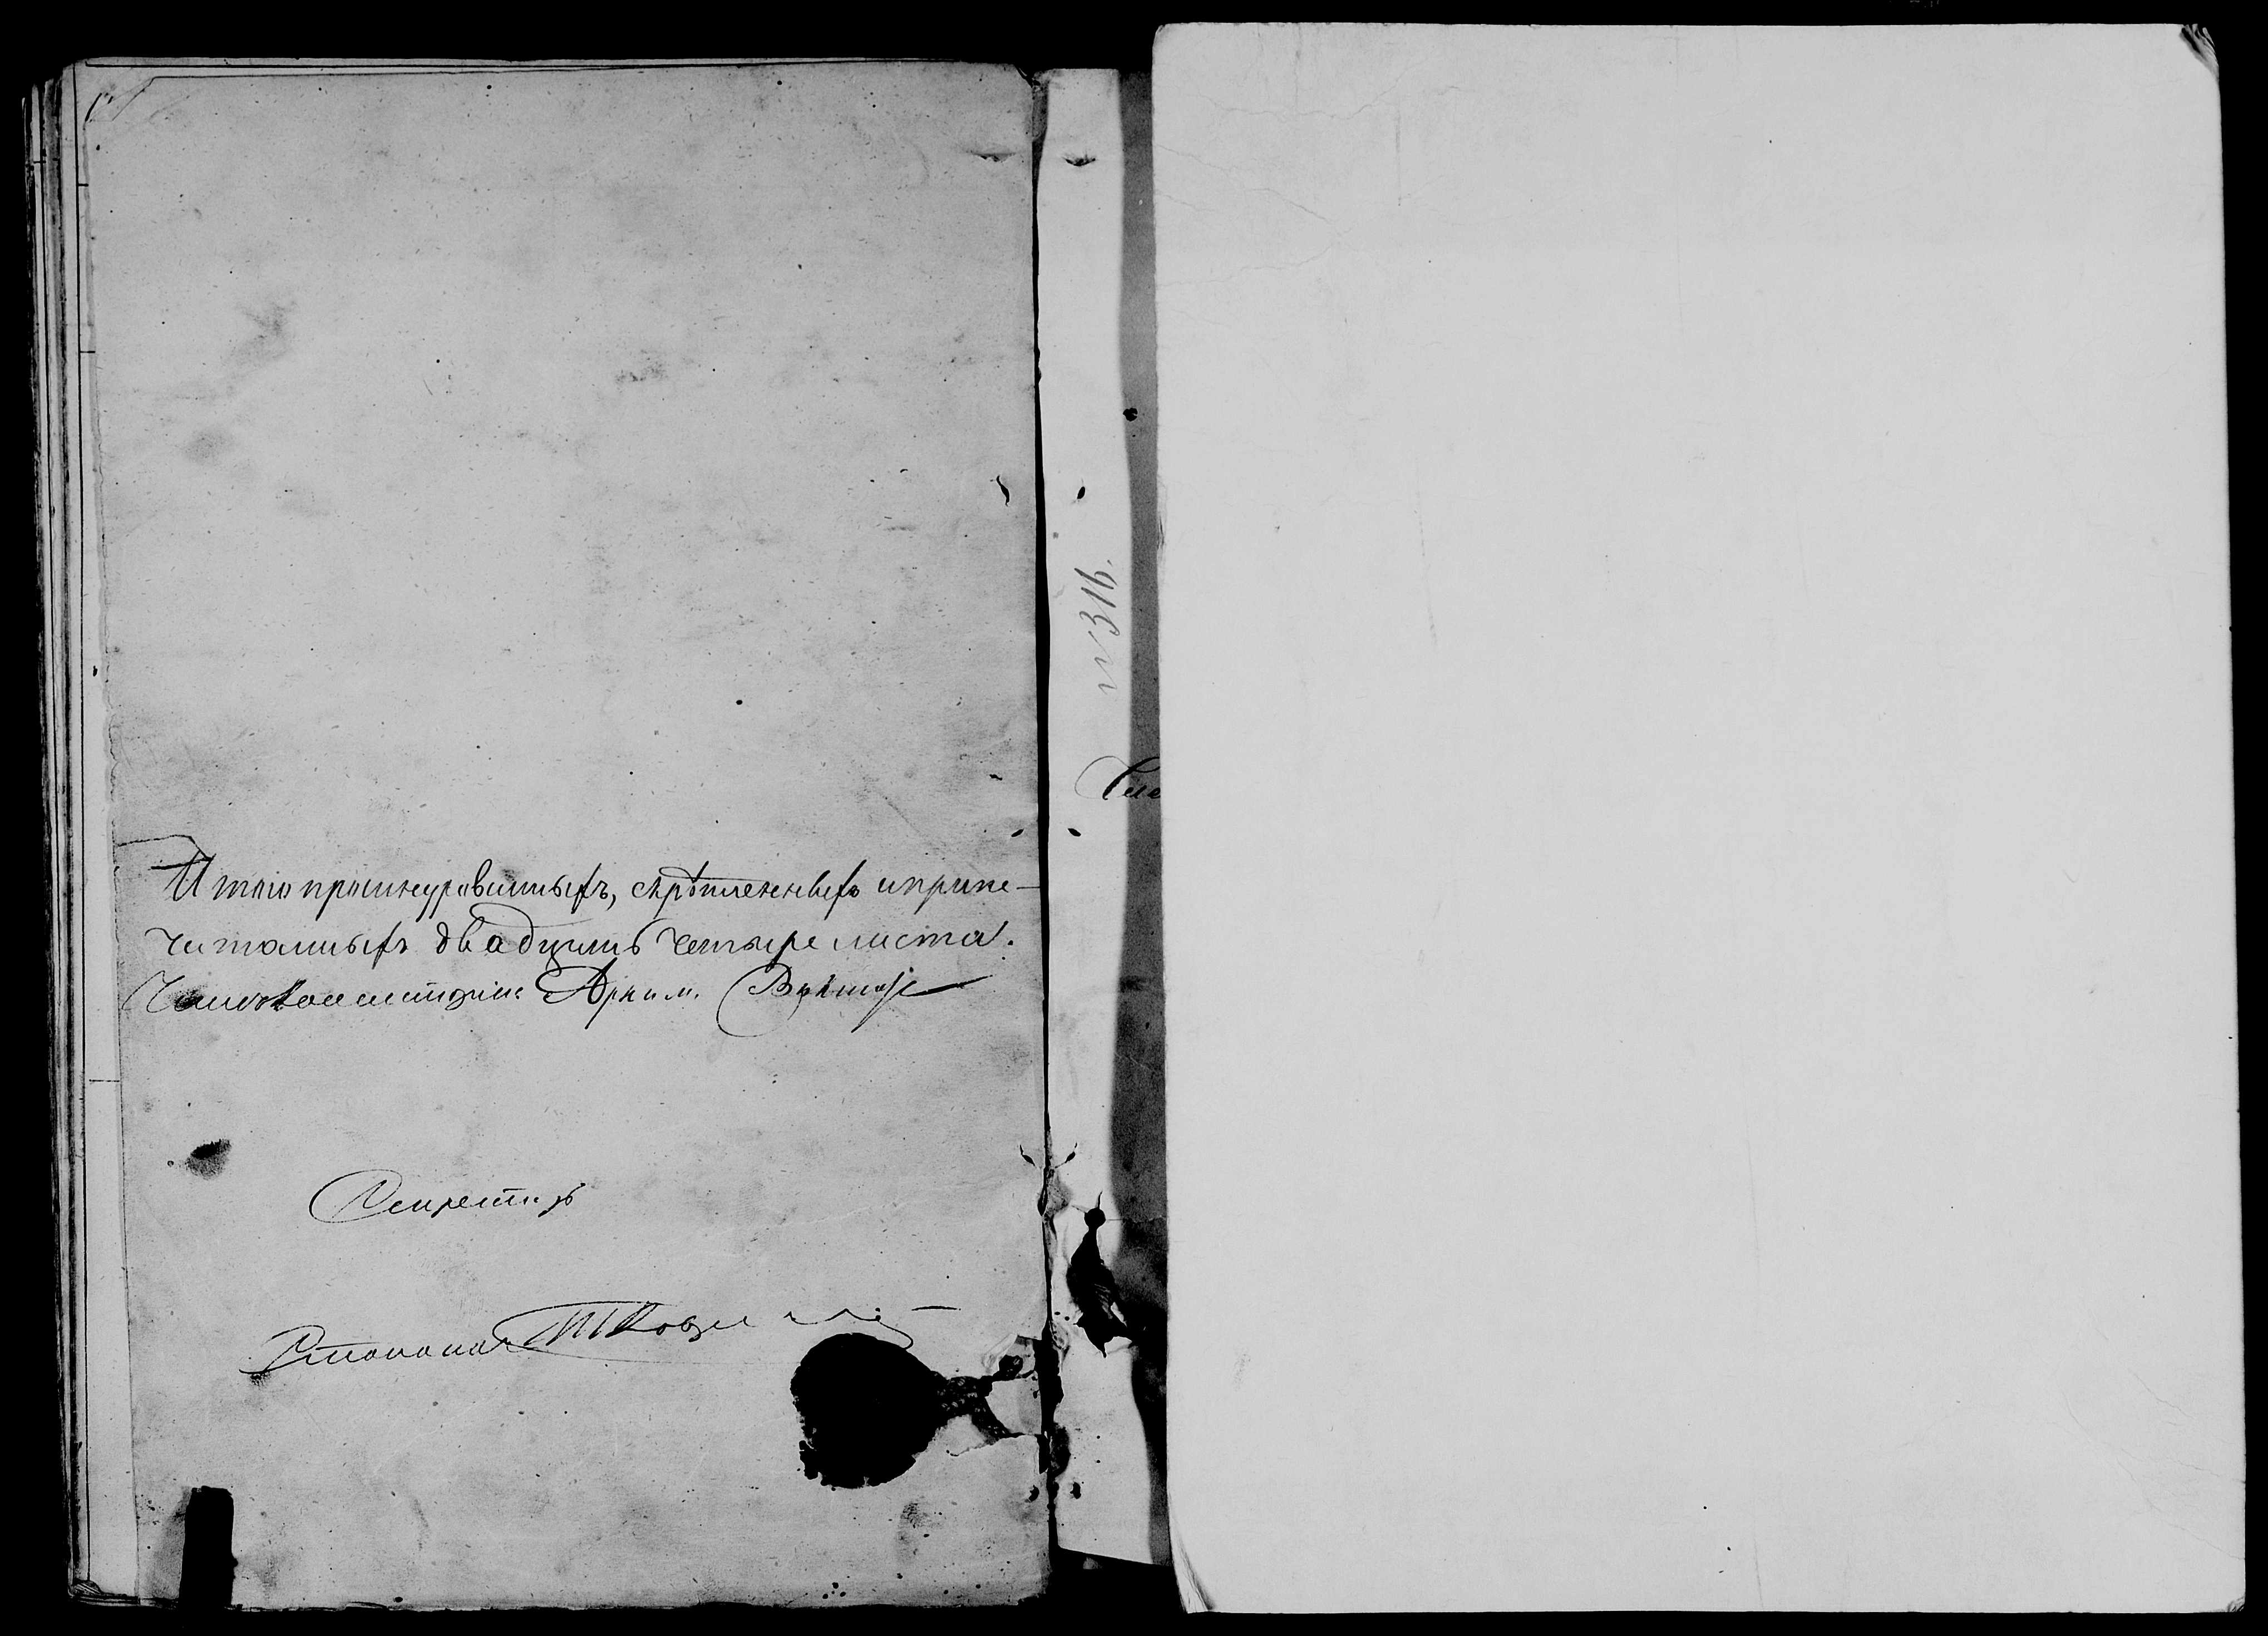 Итого прошнурованныхъ, скрѣпленныхъ и припе-
чатанныхъ двадцать четыре листа.
Членъ Консисторіи Архим. Викторъ
Секретарь
Столонач.
№ 316.